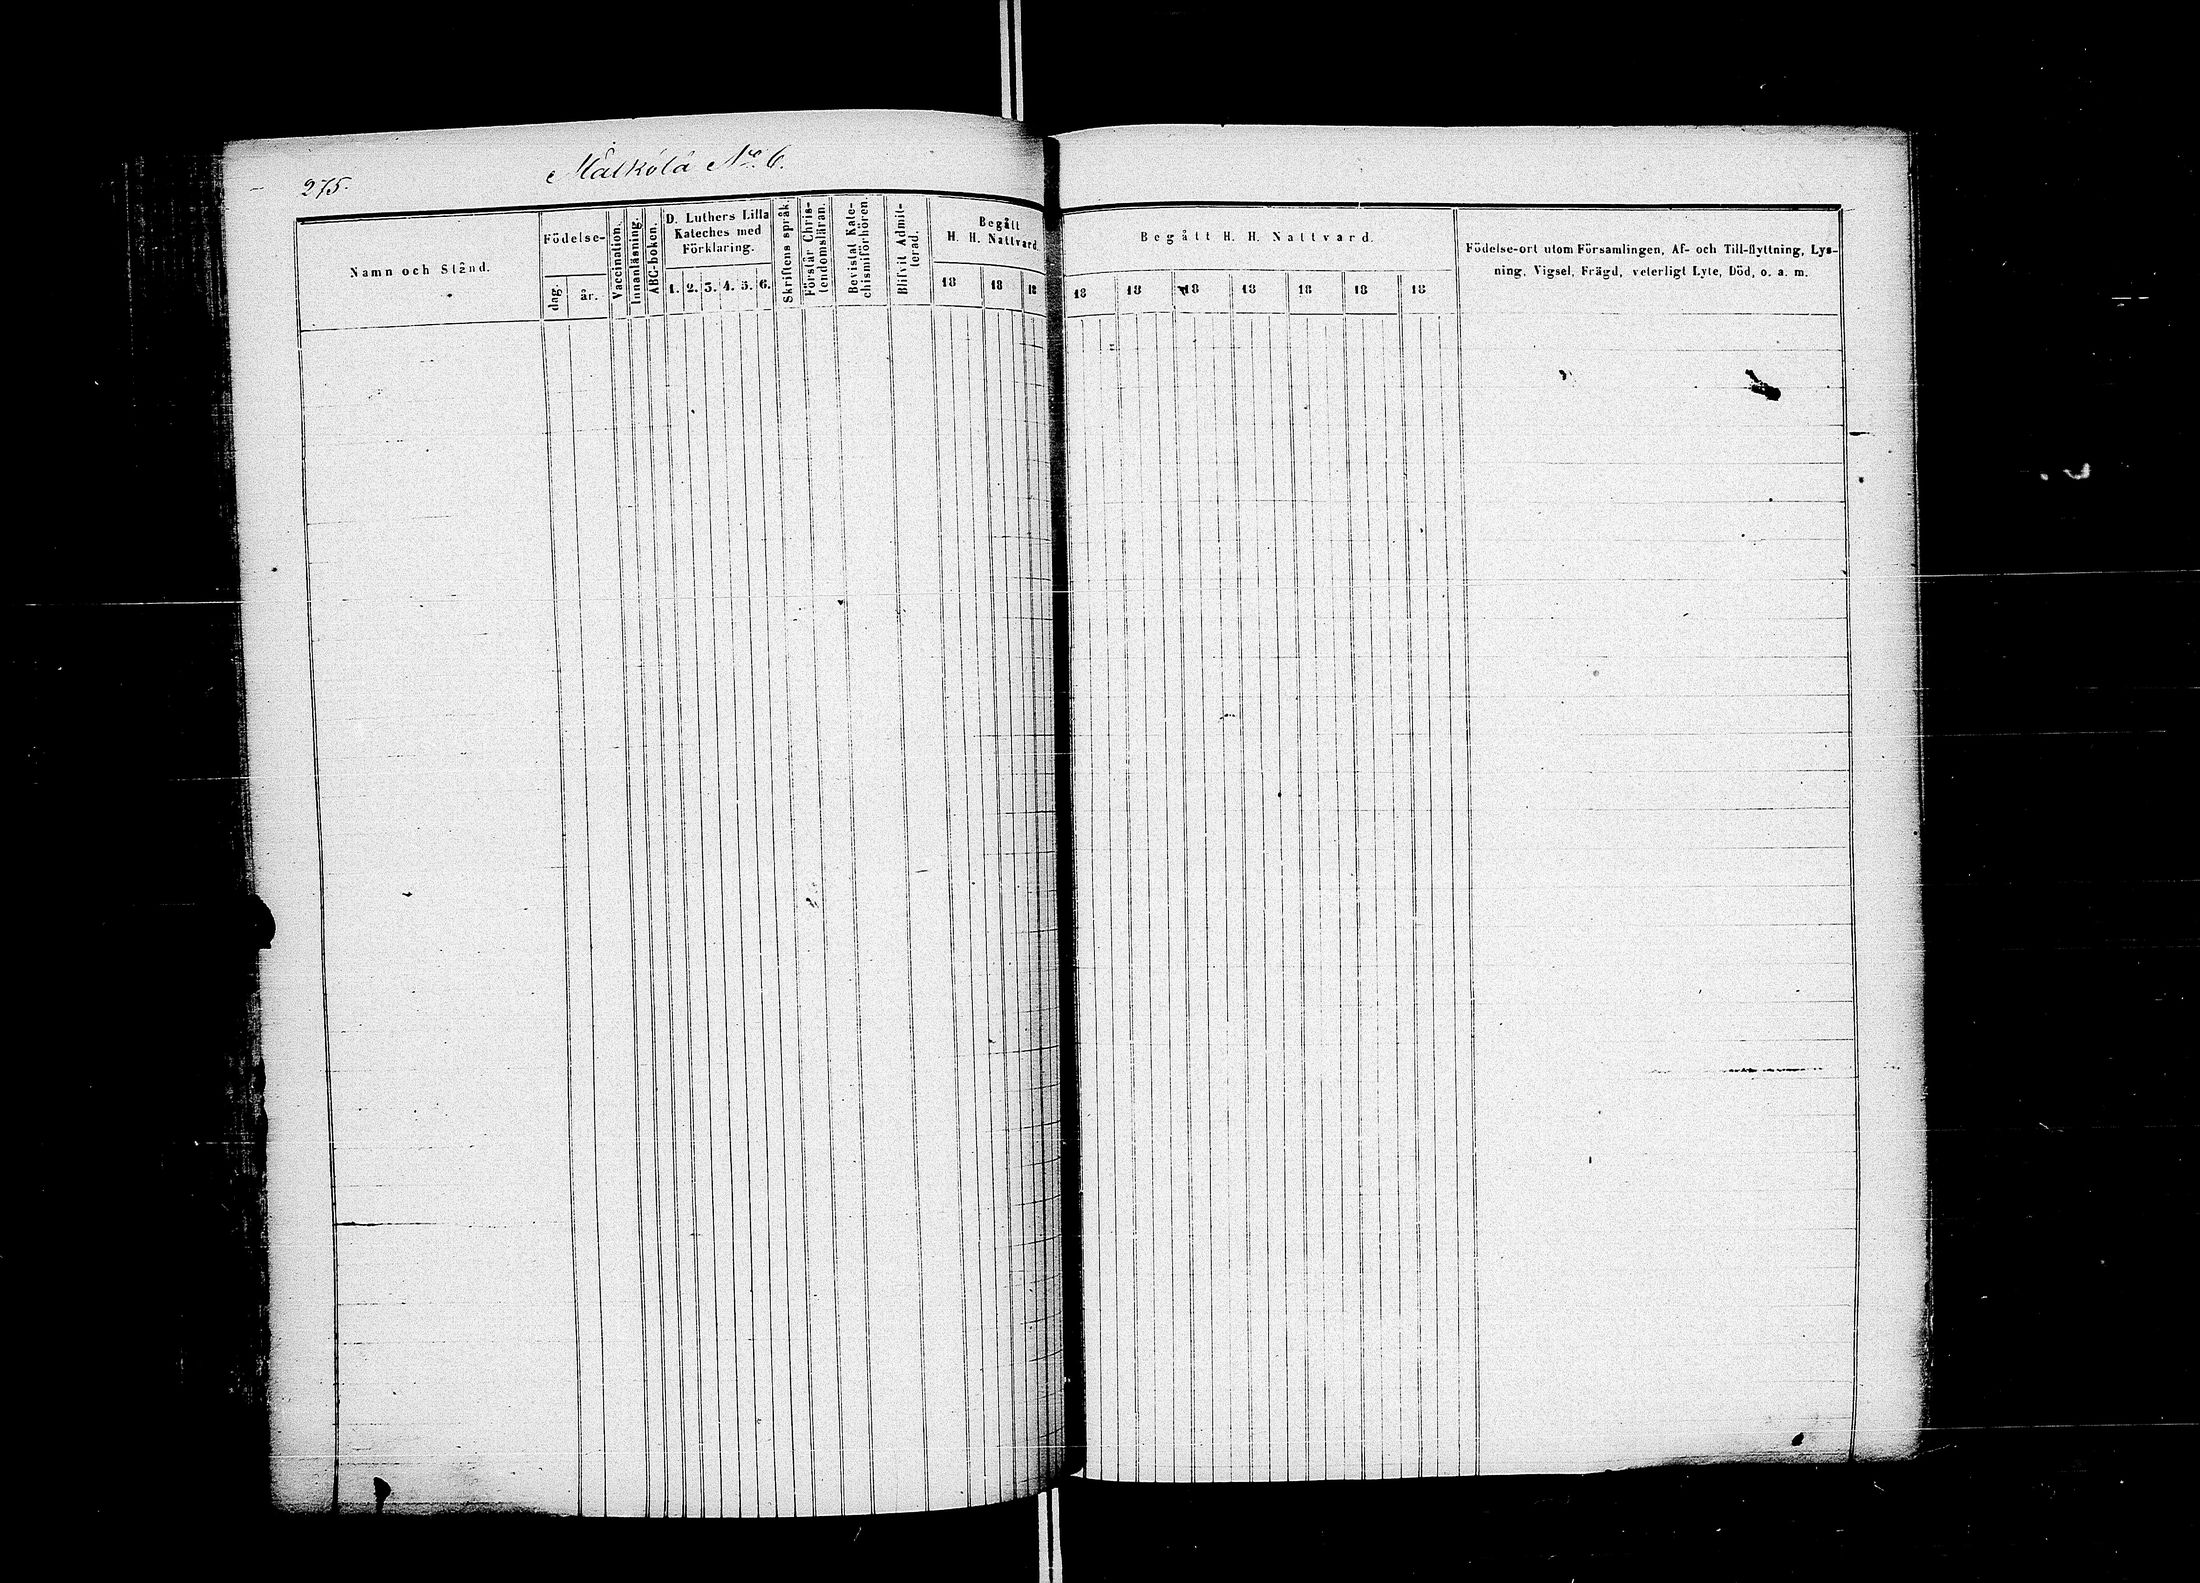 275.
Målkölä No 6.
Namn och Stånd.
Födelse-
dag.
år.
Vaccination.
Innanläsning.
ABC-boken.
D. Luthers Lilla
Kateches med
Förklaring.
1. 2. 3. 4. 5. 6.
Skriftens språk.
Förstår Chris-
tendomsläran.
Bevistat Kate-
chismiförhören.
Blifvit Admit-
terad.
Begått
H. H. Nattvard.
18 18 18
Begått H. H. Nattvard.
18 18 18 18 18 18 18
Födelse-ort utom Församlingen, Af- och Till-flyttning, Lys-
ning, Vigsel, Frägd, veterligt Lyte, Död, o. a. m.